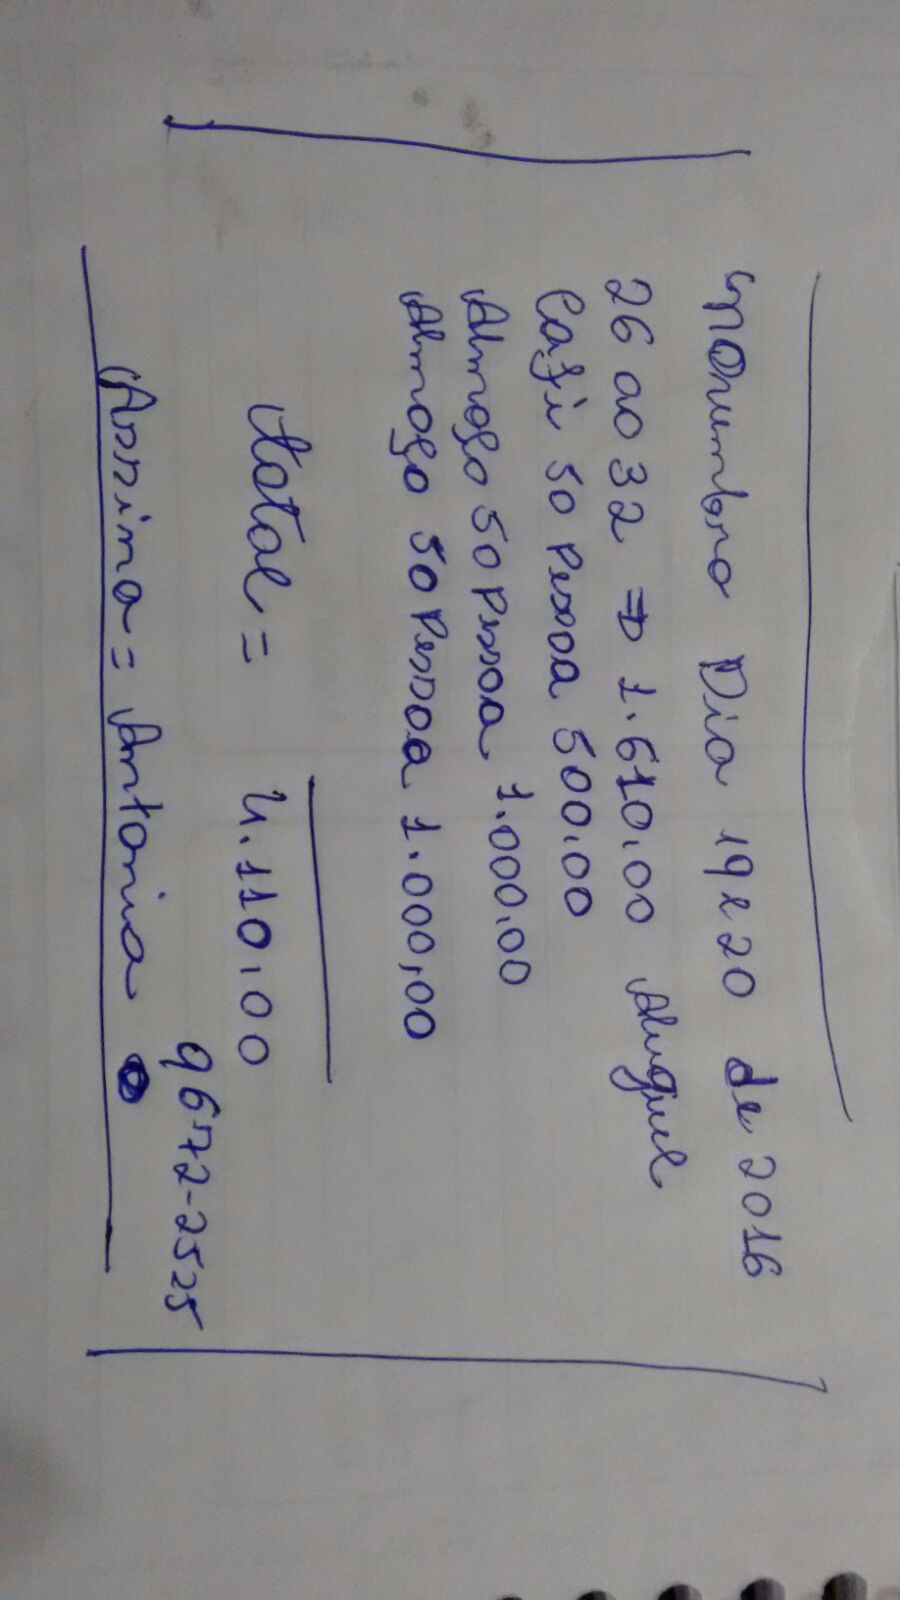 Novembro Dia 19 e 20 de 2016
26 ao 32 ⇒ 1.610,00 Aluguel
Café 50 Pessoa 500,00
Almoço 50 Pessoa 1.000,00
Almoço 50 Pessoa 1.000,00
total = 4.110,00
9672-2525
Assina = Antonia